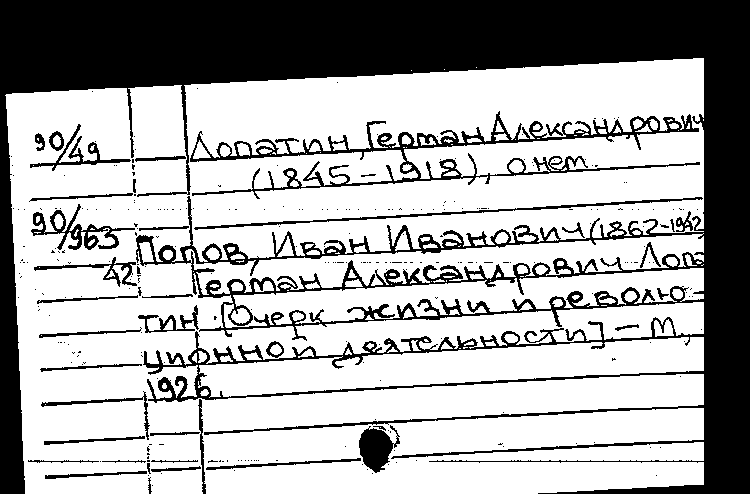 90/49 Лопатин, Герман Александрович
(1845-1918), о нем.
90/963
42
Попов, Иван Иванович (1862-1942)
Герман Александрович Лопа
тин. [Очерк жизни и револю-
ционной деятельности] - М.,
1926.